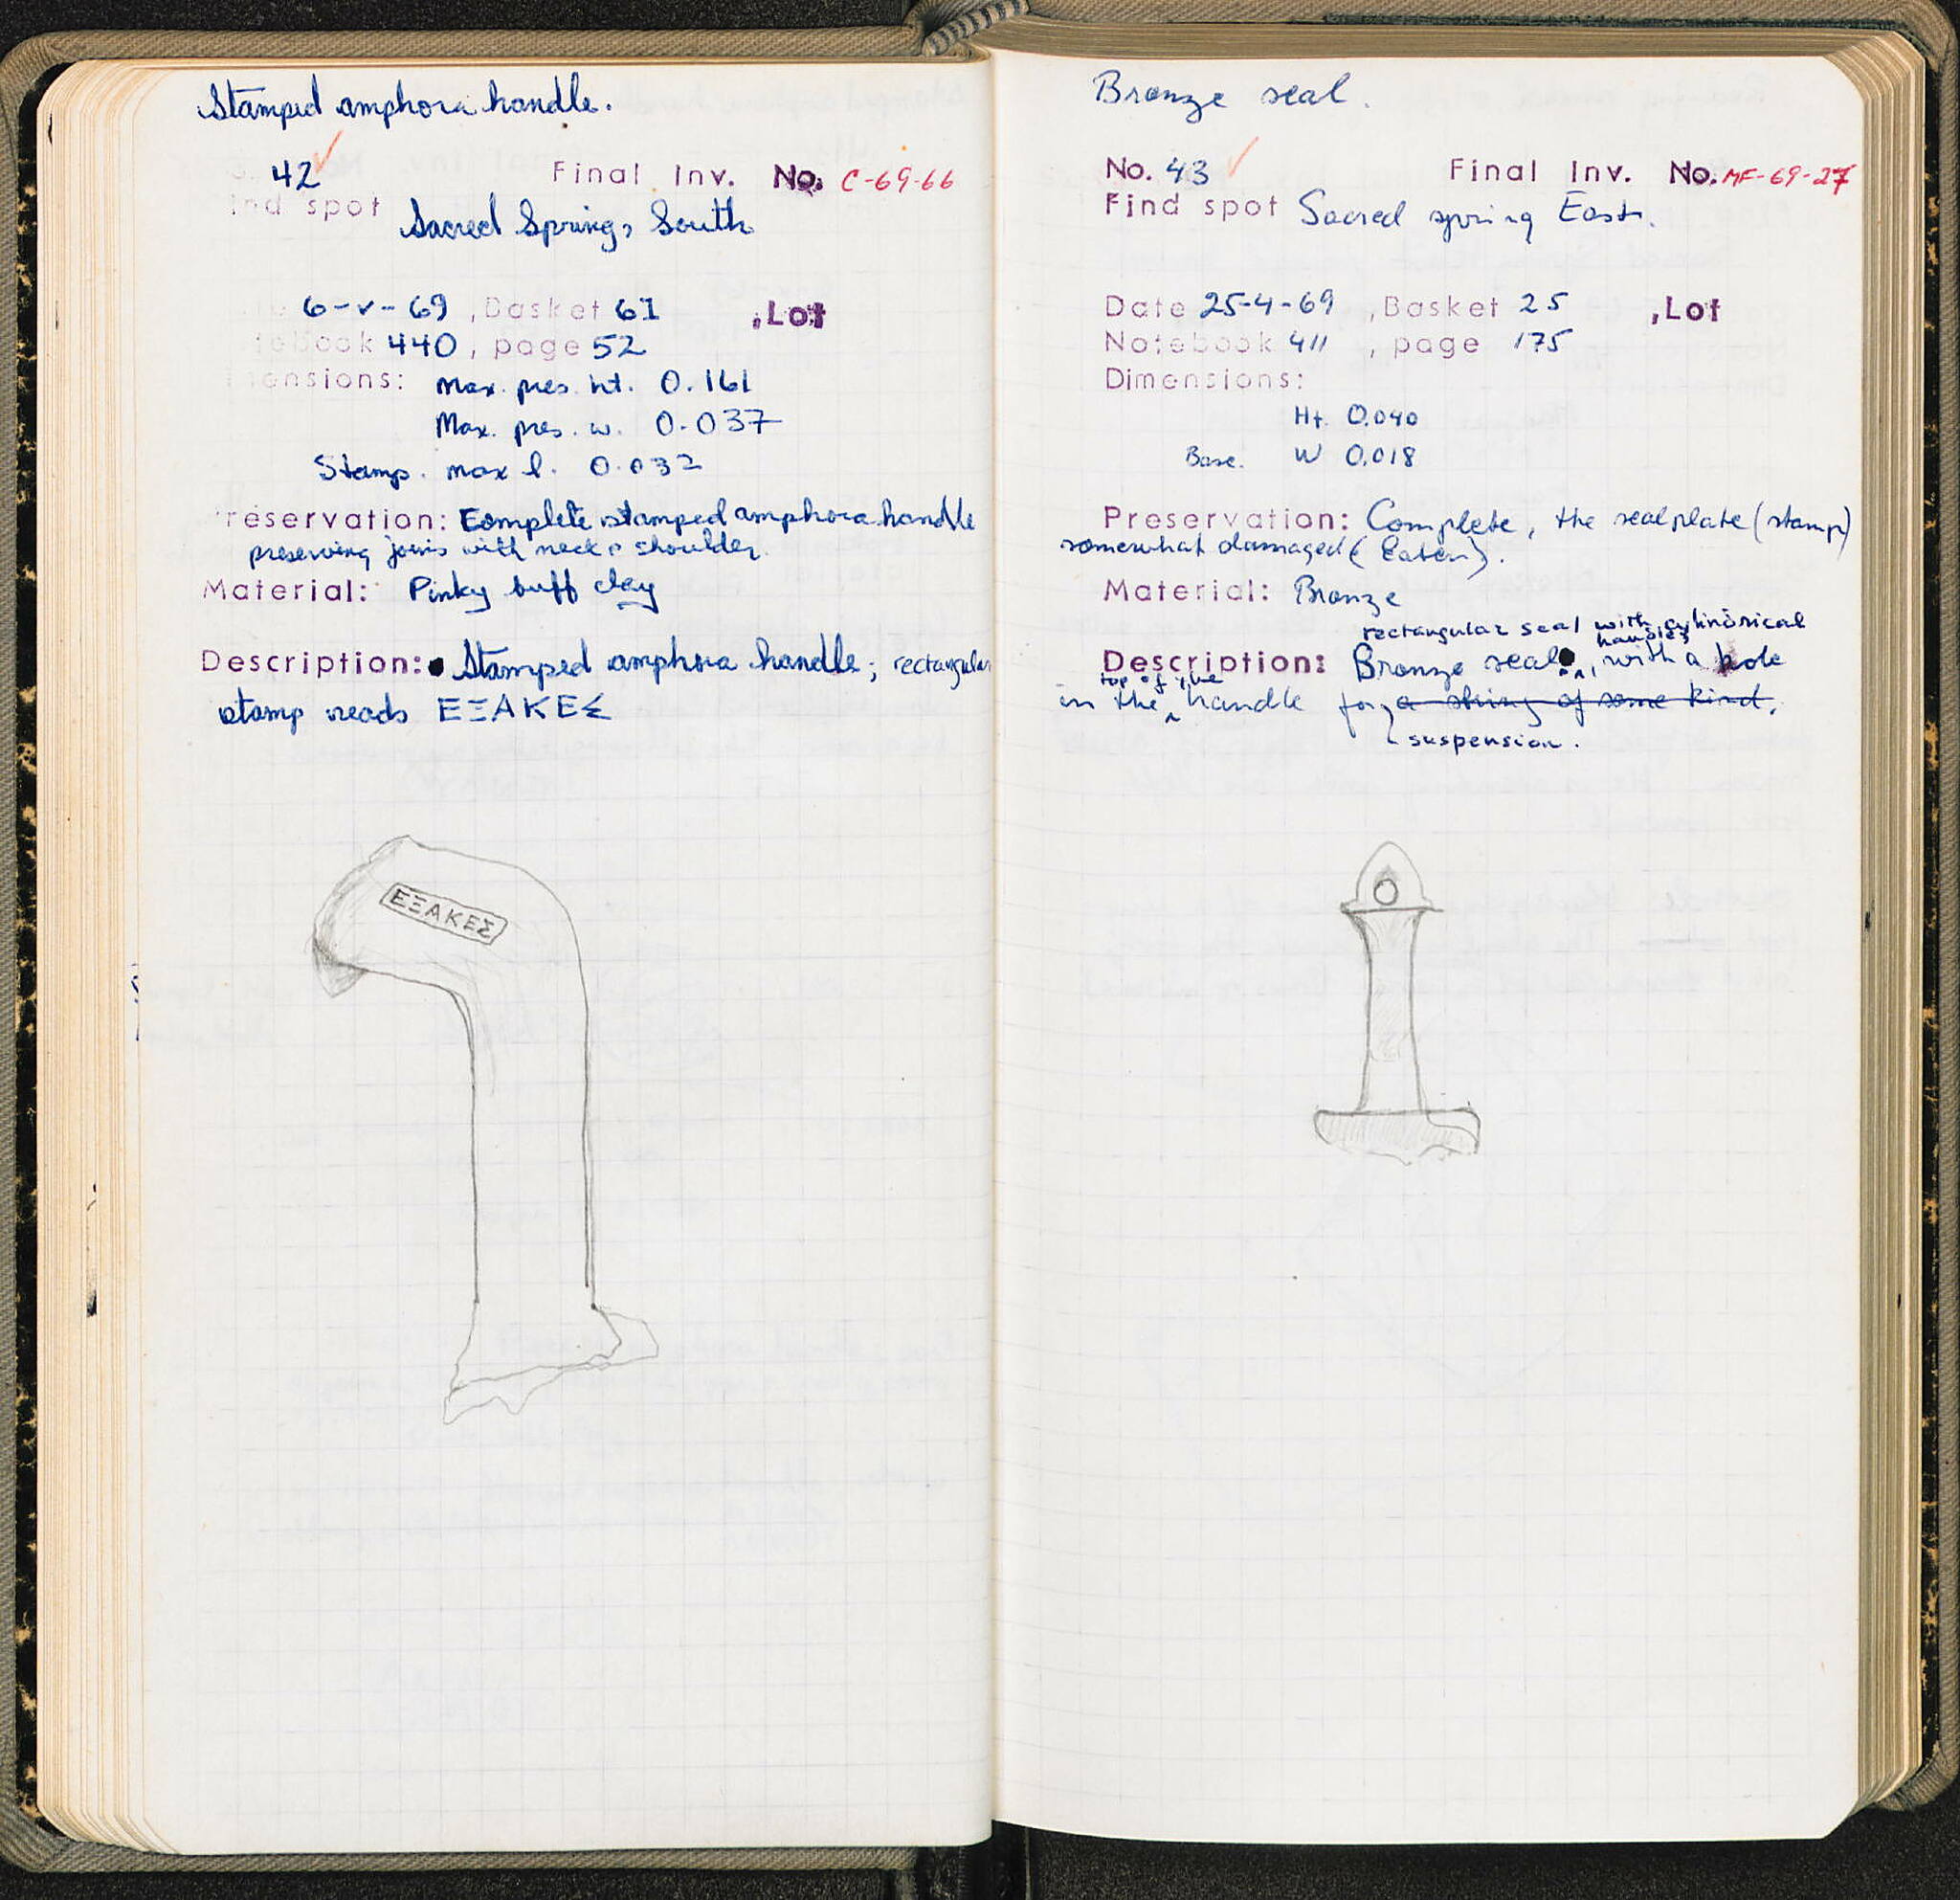 Stamped amphora handle.
42 Final Inv. No. C-69-66
ind spot Sacred Spring, South
6-v-69 , Basket 61 , Lot
ebook 440 , page 52
ensions: Max. pres. ht. 0.161
Max. pres. w. 0.037
Stamp. max l. 0.032
reservation: Complete stamped amphora handle
preserving joins with neck & shoulder.
Material: Pinky buff clay
Description: Stamped amphora handle; rectangular
stamp reads ΕΞΑΚΕΣ
ΕΞΑΚΕΣ
Bronze seal.
No. 43 Final Inv. No. MF-69-27
Find spot Sacred spring East.
Date 25-4-69 , Basket 25 , Lot
Notebook 411 , page 175
Dimensions:
Ht. 0.040
Base. W 0.018
Preservation: Complete, the sealplate (stamp)
somewhat damaged (Eaten).
Material: Bronze
rectangular seal with cylindrical
handle
Description: Bronze seal , with a hole
top of the
in the handle for a string of some kind.
suspension.